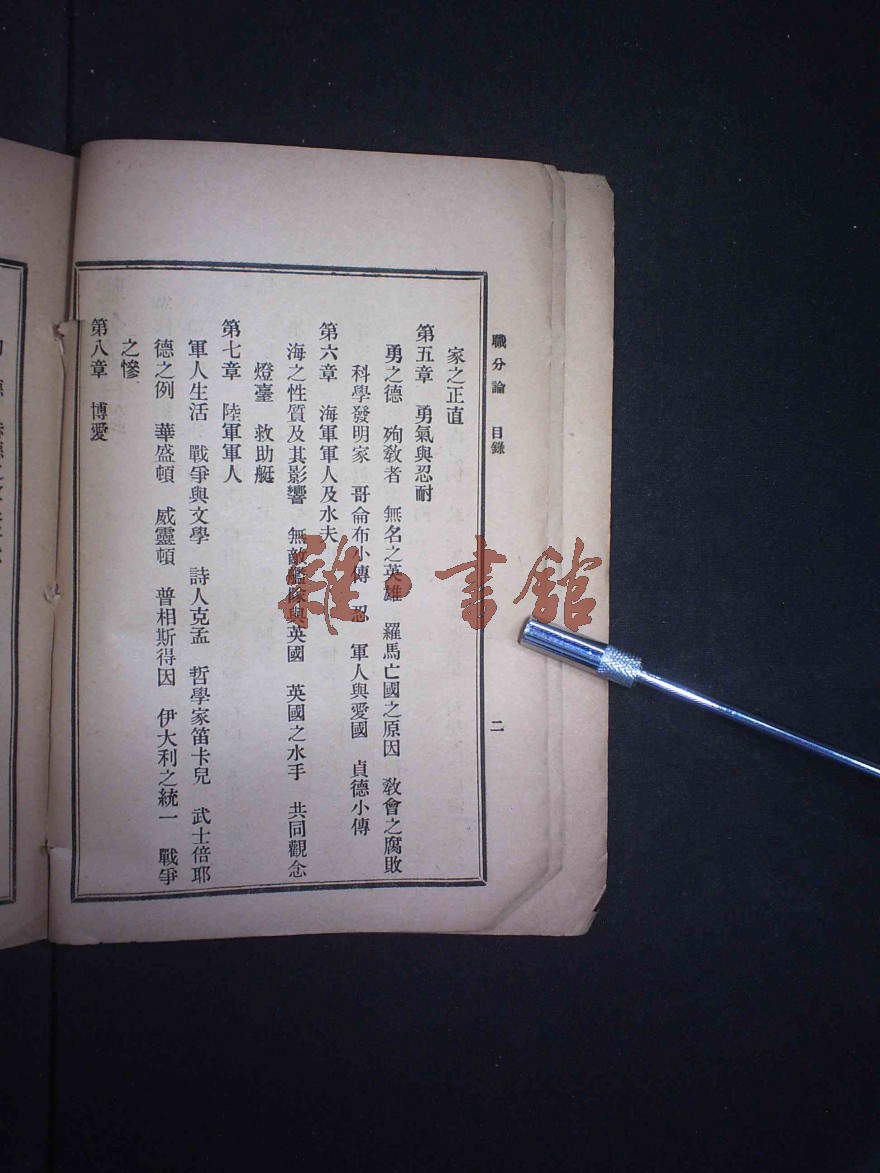 職分論 目錄 二
家之正直
第五章 勇氣與忍耐
勇之德 殉敎者 無名之英雄 羅馬亡國之原因 敎會之腐敗
科學發明家 哥侖布小傳 忍 軍人與愛國 貞德小傳
第六章 海軍軍人及水夫
海之性質及其影響 無敵艦隊與英國 英國之水手 共同觀念
燈臺 救助艇
第七章 陸軍軍人
軍人生活 戰爭與文學 詩人克孟 哲學家笛卡兒 武士倍耶
德之例 華盛頓 威靈頓 普相斯得因 伊大利之統一 戰爭
之慘
第八章 博愛
雜·書館